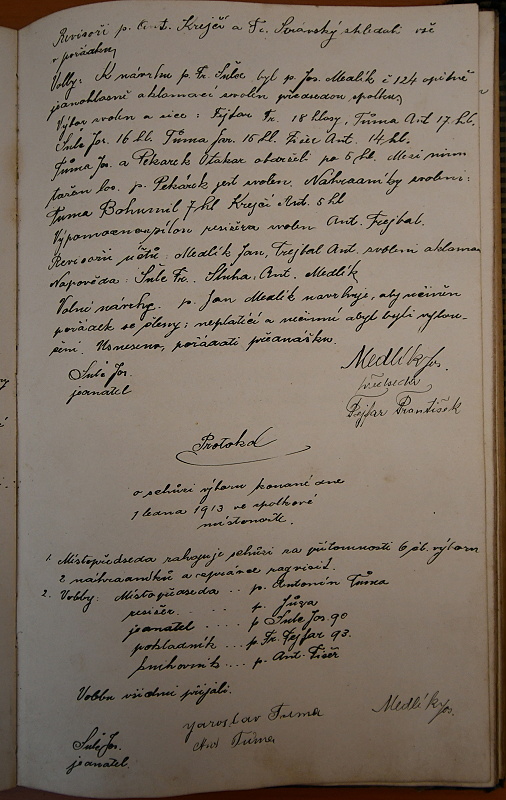 Revisoři p. Ant. Krejčí a Fr. shledali vše
v pořádku,
Volby: K návrhu p. Fr. Šulce byl p. Jos. Medlík č 124 opětně
jednohlasně aklamací zvolen předsedou spolku,
Výbor zvolen a sice: Fejfar Fr. 18 hlasy, Tůma Ant 17 hl.
Šulc Jos. 16 hl. Tůma Jar. 15 hl. Fišer Ant. 14 hl.
Tůma Jos. a Pekárek Otakar obdrželi po 5 hl. Mezi nimi
tažen los. p. Pekárek jest zvolen. Náhradníky zvoleni:
Tuma Bohumil 7 hl Krejčí Ant. 5 hl
režiséra zvolen Ant. Trejbal.
Revisoři účtů: Medlík Jan, Trejbal Ant. zvoleni aklamac
Napověda: Šulc Fr. Sluha, Ant. Medlík
Volné návrhy. p. Jan Medlík navrhuje, aby učiněn
pořádek se členy; neplatící a nečinní abyť byli vylou-
čeni. Usneseno, pořádati přednášku.
Šulc Jos.
jednatel
Medlík Jos.
předseda
Fejfar František
Protokol
o schůzi výboru konané dne
1 ledna 1913 ve spolkové
místnosti.
1. Místopředseda zahajuje schůzi za přítomnosti 6 čl. výboru
2 náhradníků a
2. Volby: Místopředseda .. p. Antonín Tůma
režisér. . . p. Jůza
jednatel ... p Šulc Jos 90
pokladník .. p. Fr. Fejfar 93.
knihovník ... p. Ant. Fišer
Volbu všichni přijali.
Jaroslav Tuma
Ant Tůma
Medlík Jos.
Šulc Jos.
jednatel.